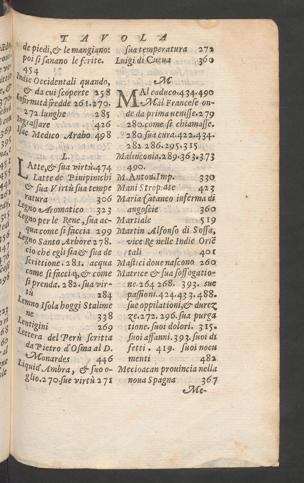 TAVOLA
de piedi, & le mangiano:
poi si sanano le ferite.
454
Indie Occidentali quando,
& da cui scoperte 258
Infirmità fredde 261.270.
272. lunghe 285
Ingrassare 426
Isac Medico Arabo 498
L.
LAtte, & sua virtù. 474
Latte de Pimpinichi
& sua Virtù sua tempe
ratura 306
Legno Aromatico 323
Legno per le Rene, sua ac-
qua come si faccia 299
Legno Santo Arbore 278.
cio che egli sia & sua de
scrittione. 281. acqua
come si faccia, & come
si prenda. 282. sua vir-
tù 284
Lemno Isola hoggi Stalime
ne 338
Lentigini 269
Lettera del Perù scritta
da Pietro d'Osma al D.
Monardes 446
Liquid'Ambra, & suo o-
glio. 270. sue virtù 271
sua temperatura 272
Luigi di Cueua 360
M
MAl caduco. 434.490
Mal Francese on-
de da prima venisse. 279
280. come si chiamasse.
280 sua cura. 422.434.
282.286.295.315
Malinconia. 289.363.373
490.
M. Anton. Imp. 330
Mani Stroppiate 423
Maria Cataneo inferma di
angoscie 360
Martiale 519
Martin Alfonso di Sossa,
vice Re nelle Indie Oriẽ
tali 401
Mastici doue nascono 260
Matrice & sua soffogatio-
ne. 264.268. 393. sue
passioni. 424.433.488.
sue oppilationi, & durez
ze. 272.296. sua purga
tione. suoi dolori. 315.
suoi affanni. 393. suoi di
fetti. 419. suoi nocu
menti 482
Mecioacan prouincia nella
noua Spagna 367
Me-